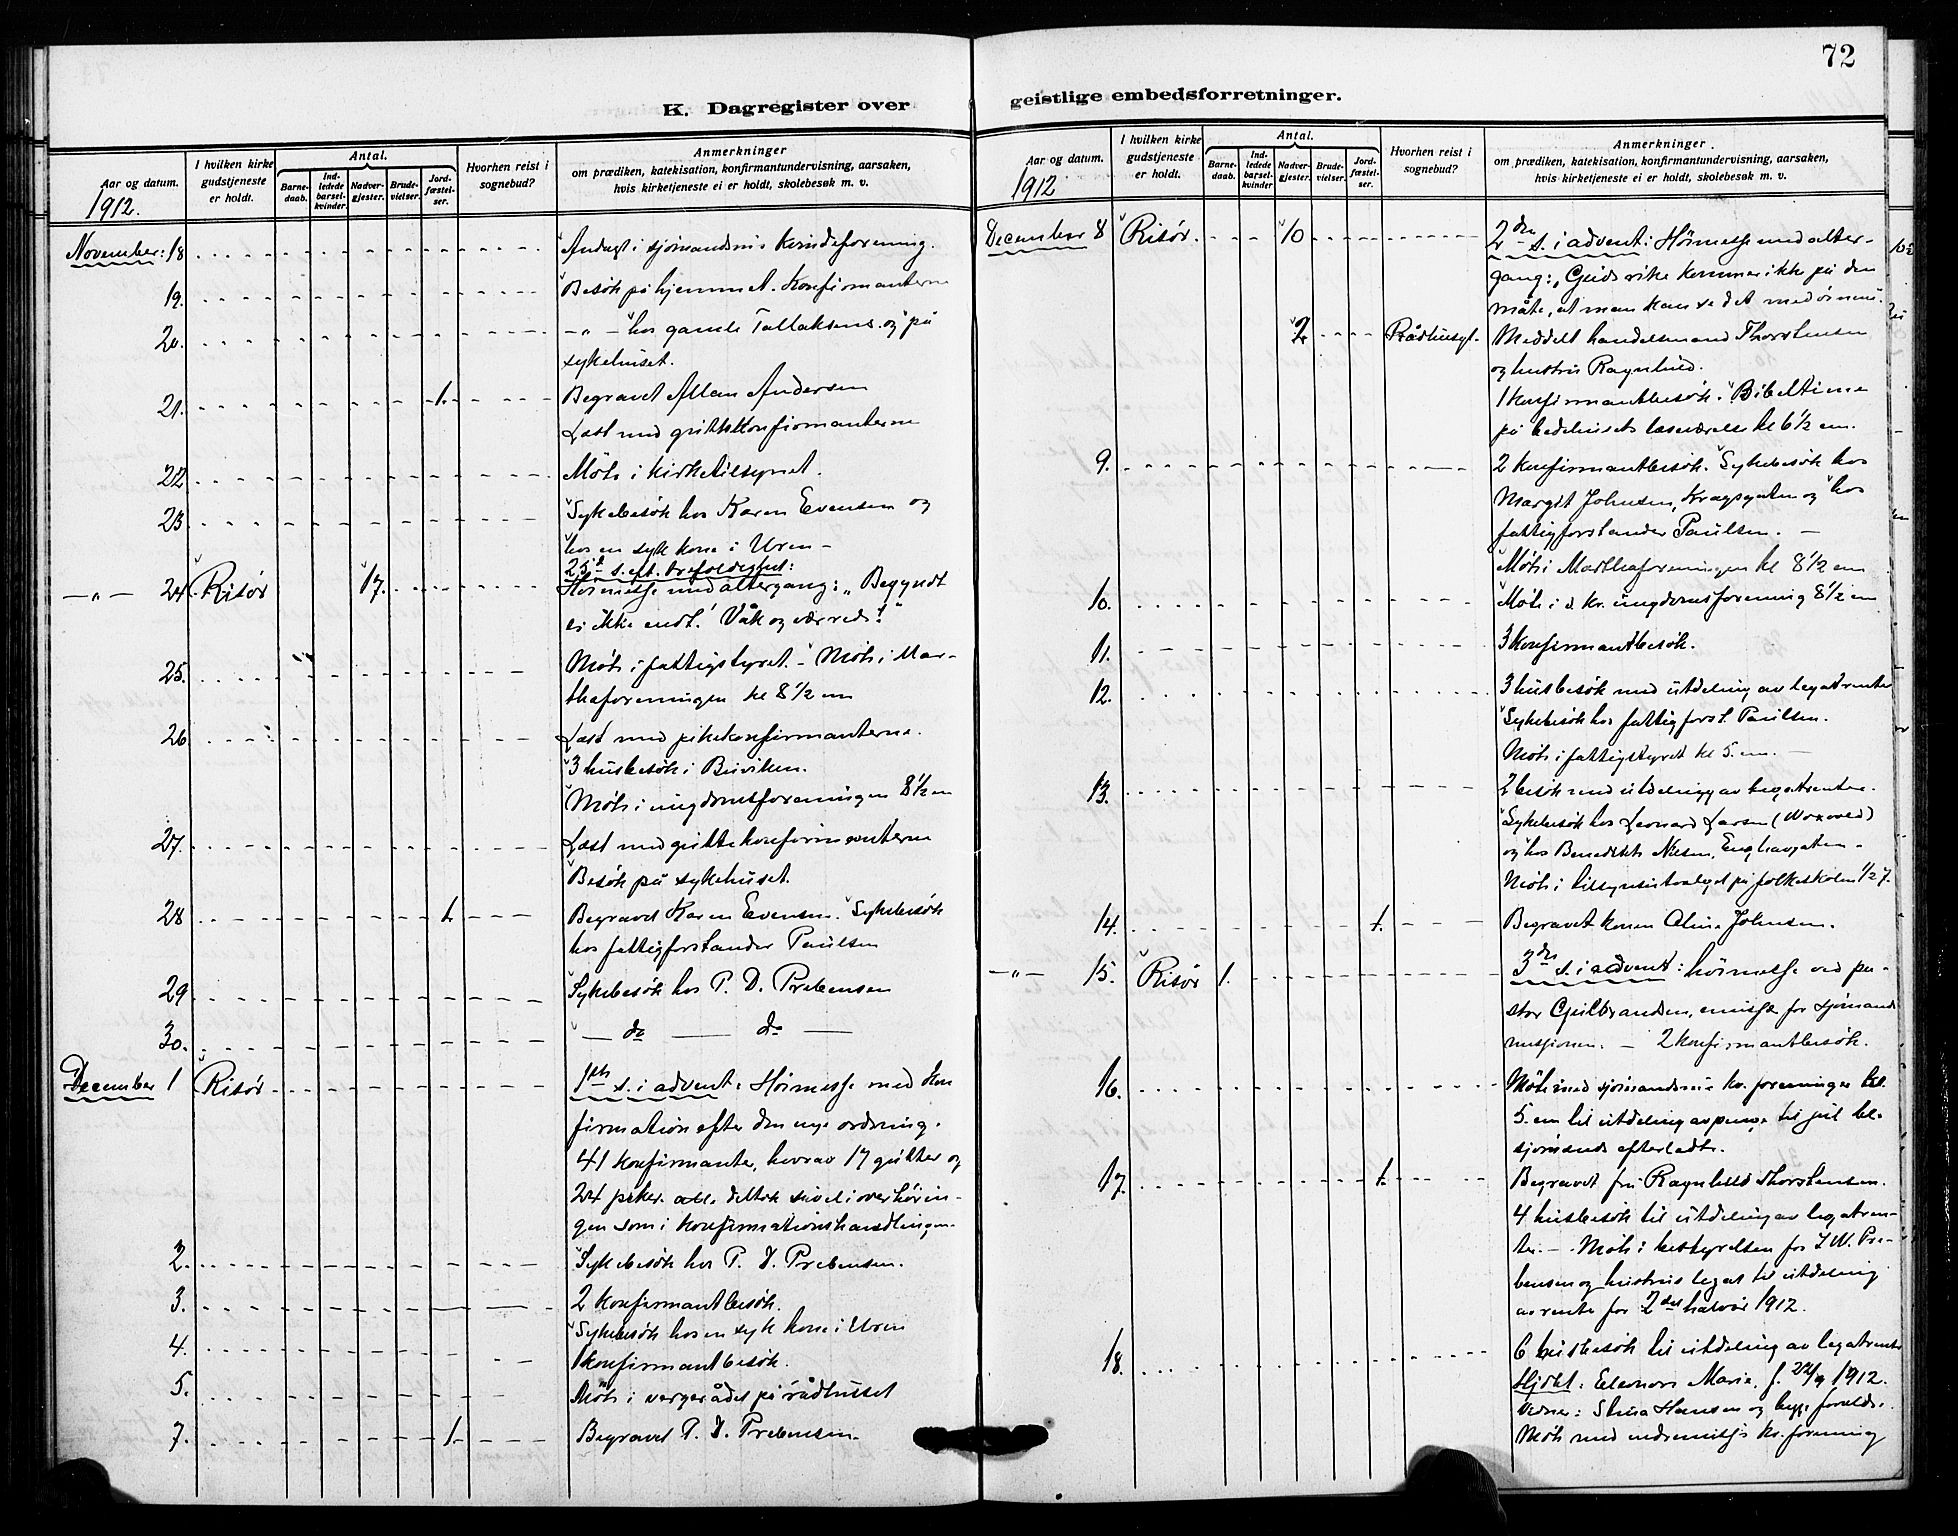 72
K. Dagregister over
geistlige embedsforretninger.
Aar og datum.
1912.
I hvilken kirke gudstjeneste er holdt.
Antal.
Barnedaab.
Indledede barselkvinder.
Nadvergjester.
Brudevielser.
Jordfæstelser.
Hvorhen reist i sognebud?
Anmerkninger
om prædiken, katekisation, konfirmantundervisning, aarsaken,
hvis kirketjeneste ei er holdt, skolebesøk m. v.
November: 18 Andagt i sjømandsmis kvindeforening.
19. Besøk på hjemmet. Konfirmanterne
20. — " — hos gamle Tallaksens og på
sykehuset.
21. 1. Begravet Allan Andersen
Læst med guttekonfirmanterne
22 Møte i kirketilsynet.
23 Sykebesøk hos Karen Evensen og
hos en syk kone i Uren –
25de s. eft. trefoldighet:
— " — 24. Risør 17. Høimesse med altergang: „Begyndt
er ikke endt! Våk og vær rede!"
25. Møte i fattigstyret. – Møte i Mar-
thaforeningen kl 8½ em
26 Læst med pikekonfirmanterne.
3 husbesøk i Buviken.
Møte i ungdomsforeningen 8½ em
27. Læst med guttekonfirmanterne
Besøk på sykehuset.
28 1. Begravet Karen Evensen. Sykebesøk
hos fattigforstander Paulsen
29 Sykebesøk hos P. D. Prebensen
30. — do — do —
December 1 Risør 1ste s. i advent: Høimesse med kon
firmation efter den nye ordning.
41 konfirmanter, hvorav 17 gutter og
24 piker. alle deltok såvel i overhørin-
gen som i konfirmationshandlingen.
2. Sykebesøk hos P. D. Prebensen.
3. 2 konfirmantbesøk.
Sykebesøk hos en syk kone i Uren
4. 1 konfirmantbesøk.
5. Møte i vergerådet på rådhuset
7. 1. Begravet P. D. Prebensen.
Aar og datum.
1912
I hvilken kirke gudstjeneste er holdt.
Antal.
Barnedaab.
Indledede barselkvinder
Nadvergjester.
Brudevielser.
Jordfæstelser.
Hvorhen reist i sognebud?
Anmerkninger.
om prædiken, katekisation, konfirmantundervisning, aarsaken,
hvis kirketjeneste ei er holdt, skolebesøk m. v.
December 8 Risør. 10 2den s. i advent: Høimesse med alter-
gang: „Guds rike kommer ikke på den
måte, at man kan se det med øinene.
2 Rådhusgt. Meddelt handelsmand Thorstensen
og hustru Ragnhild.
1 konfirmantbesøk. Bibeltime
på bedehusets læseværelse kl 6½ em.
9. 2 konfirmantbesøk. Sykebesøk hos
Margit Johnsen, Kragsgaten og hos
fattigforstander Paulsen. –
Møte i Marthaforeningen kl 8½ em
10. Møte i d. kr. ungdomsforening 8½ em
11. 3 konfirmantbesøk.
12. 3 husbesøk med utdeling av legatrenter
Sykebesøk hos fattigforst. Paulsen.
Møte i fattigstyret kl 5. em. –
13. 2 besøk med utdeling av legatrenter.
Sykebesøk hos Leonard Larsen
og hos Benedikte Nilsen, Enghavgaten –
Møte i tilsynsutvalget på folkeskolen ½ 7.
14. 1. Begravet konen Aline Johnsen.
— " — 15. Risør 1. 3die s. i advent: høimesse ved pa-
stor Gulbrandsen, emisse for sjømands
missionen. – 2 konfirmantbesøk.
16. Møte med sjømandsmis kv. foreninger kl.
5. em til utdeling av penge til jul bl.
sjømænds efterladte.
17. 1. Begravet fru Ragnhild Thorstensen.
4 husbesøk til utdeling av legatren-
ter. – Møte i bestyrelsen for I. W. Pre-
bensen og hustrus legat til utdeling
av rente for 2det halvår 1912.
18. 6 husbesøk til utdeling av legatrenter
Hjdbt: Eleonore Marie, f. 24/9 1912.
Vidner: Stina Hansen og begge forældr.
Møte med indremiss kv. forening